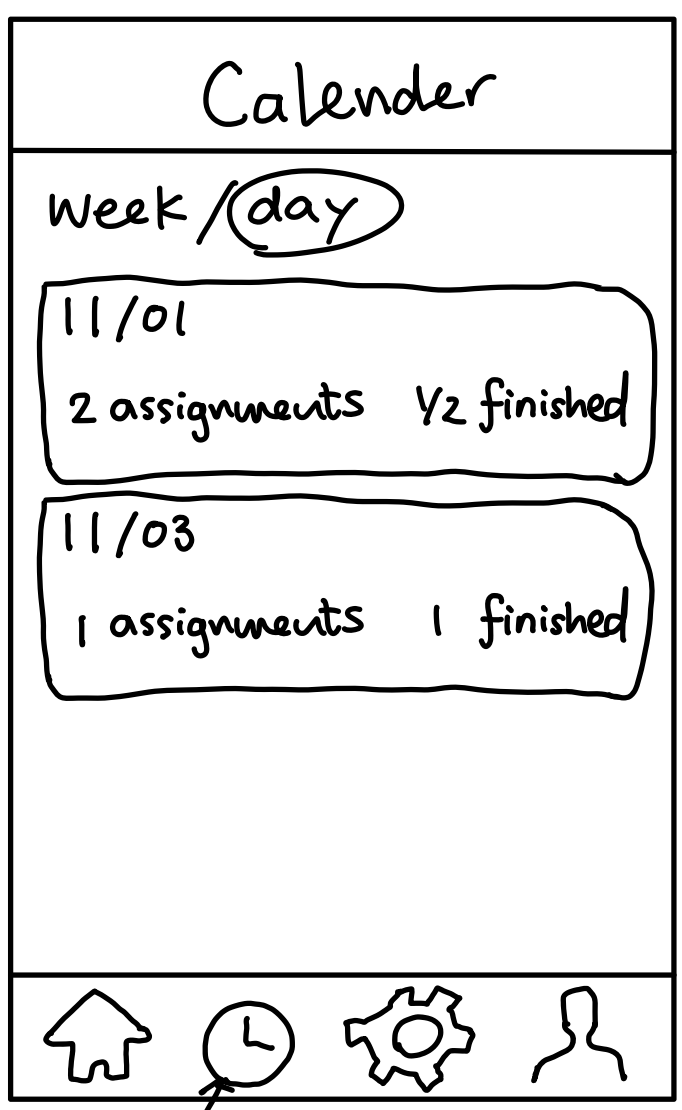 Calender
week / day
11/01
2 assignments 1/2 finished
11/03
1 assignments 1 finished